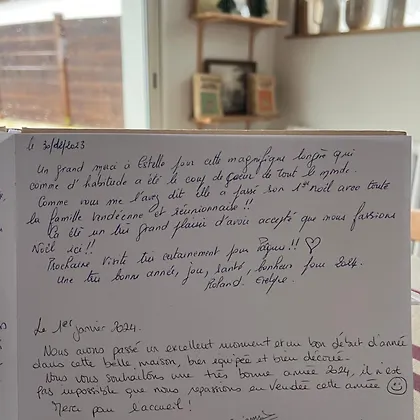 le 30/12/2023
Un grand merci à Estelle pour cette magnifique longère qui
comme d'habitude a été le coup de coeur de tout le monde.
Comme vous me l'avez dit elle a passé son 1er noël avec toute
la famille vendéenne et réunionnaise !!
Ça été un très grand plaisir d'avoir accepté que nous fassions
Noël ici !!
Prochaine visite très certainement pour Pâques !! ♡
Une très bonne année, joie, santé, bonheur pour 2024.
Roland.
Le 1er janvier 2024.
Nous avons passé un excellent moment et un bon début d'année
dans cette belle maison, bien équipée et bien décorée.
Nous vous souhaitons une très bonne année 2024, il n'est
pas impossible que nous repassions en Vendée cette année ☺
Merci pour l'accueil !